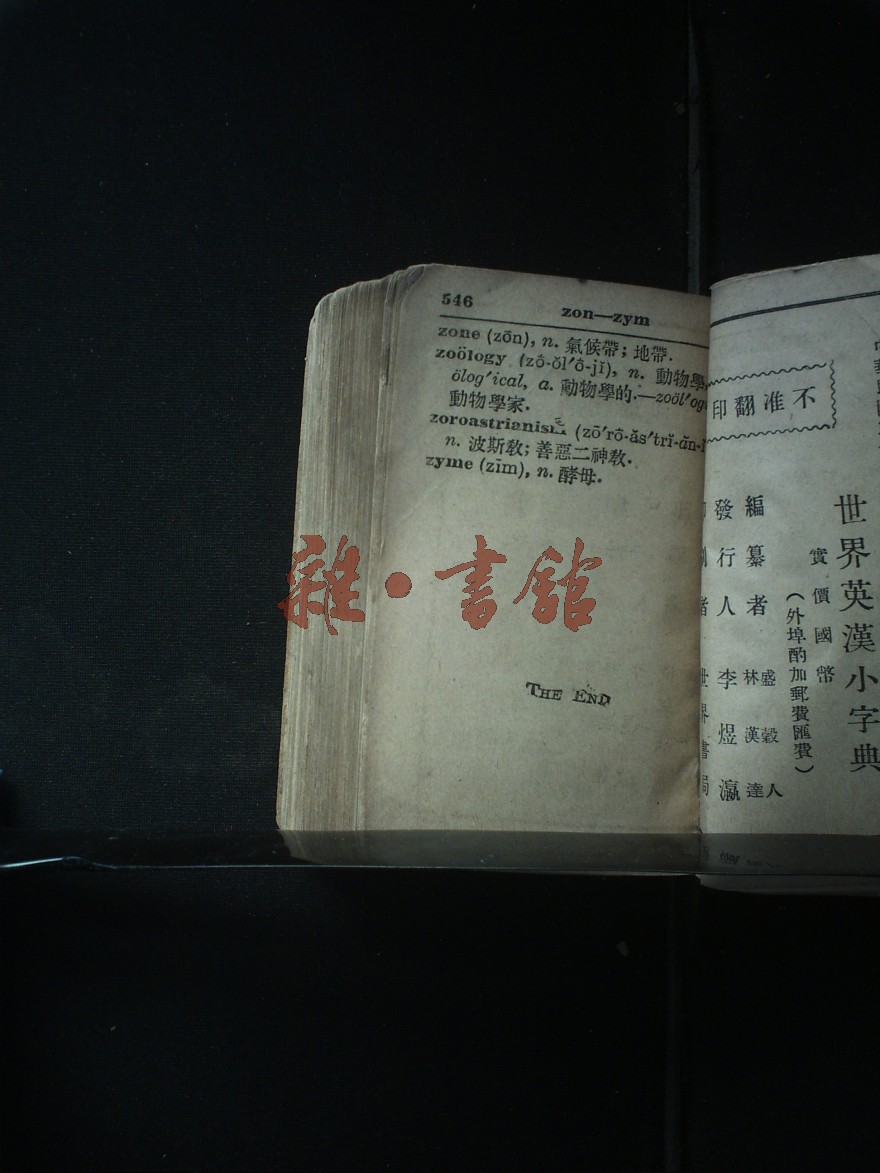 546
zon—zym
zone (zōn), n. 氣候帶；地帶.
zoölogy (zō-ŏl′ō-jĭ), n. 動物學
ölog′ical, a. 動物學的.—zoöl′og
動物學家.
zoroastrianism (zō′rō-ăs′trĭ-ăn-
n. 波斯敎；善惡二神敎.
zyme (zīm), n. 酵母.
THE END
雜·書館
不准翻印
世界英漢小字典
實價國幣
(外埠酌加郵費匯費)
編纂者 林漢達 盛穀人
發行人 李煜瀛
者 世界書局